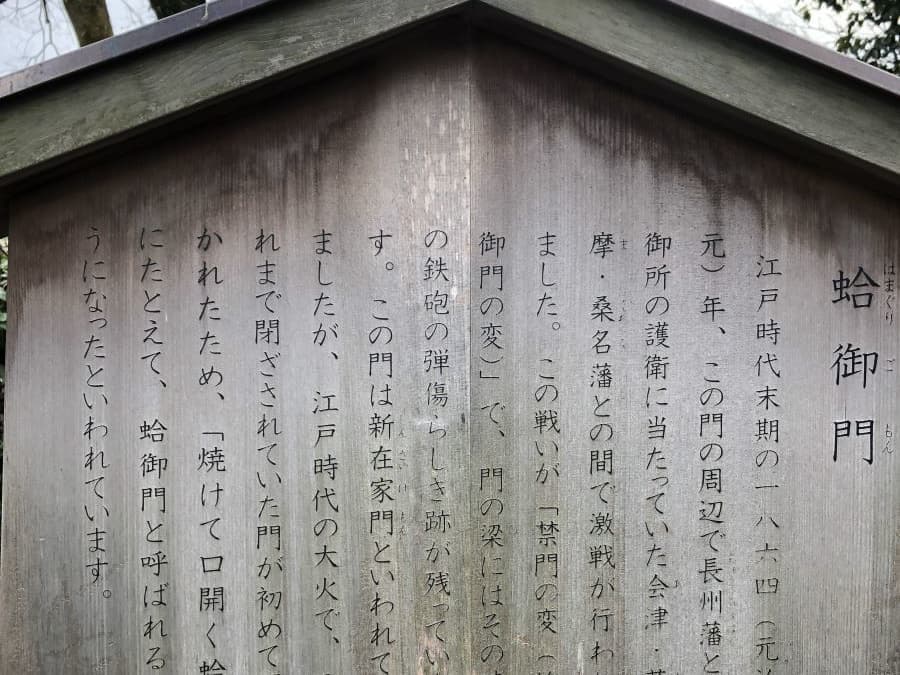 蛤御門
はまぐりごもん
江戸時代末期の一八六四（元
元）年、この門の周辺で長州藩と
御所の護衛に当たっていた会津・
摩・桑名藩との間で激戦が行わ
ました。この戦いが「禁門の変（
御門の変）」で、門の梁にはその
の鉄砲の弾傷らしき跡が残ってい
す。この門は新在家門といわれて
ましたが、江戸時代の大火で、
れまで閉ざされていた門が初めて
かれたため、「焼けて口開く蛤
にたとえて、蛤御門と呼ばれる
うになったといわれています。